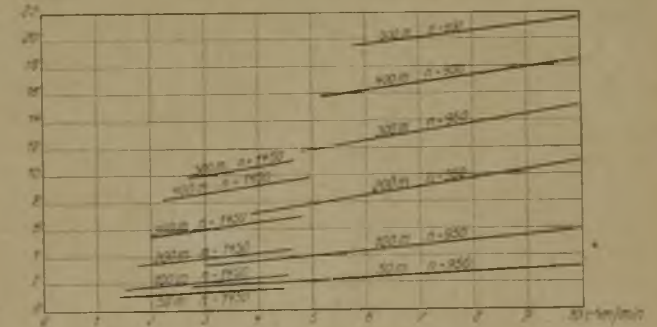 22
20
18
16
14
12
10
8
6
4
2
0
400 m n=950
300 m n=950
200 m n=950
100 m n=950
50 m n=950
n=1450
400 m n=1450
200 m n=1450
100 m n=1450
50 m n=1450
0 1 2 3 4 5 6 7 8 9 10 cbm/min